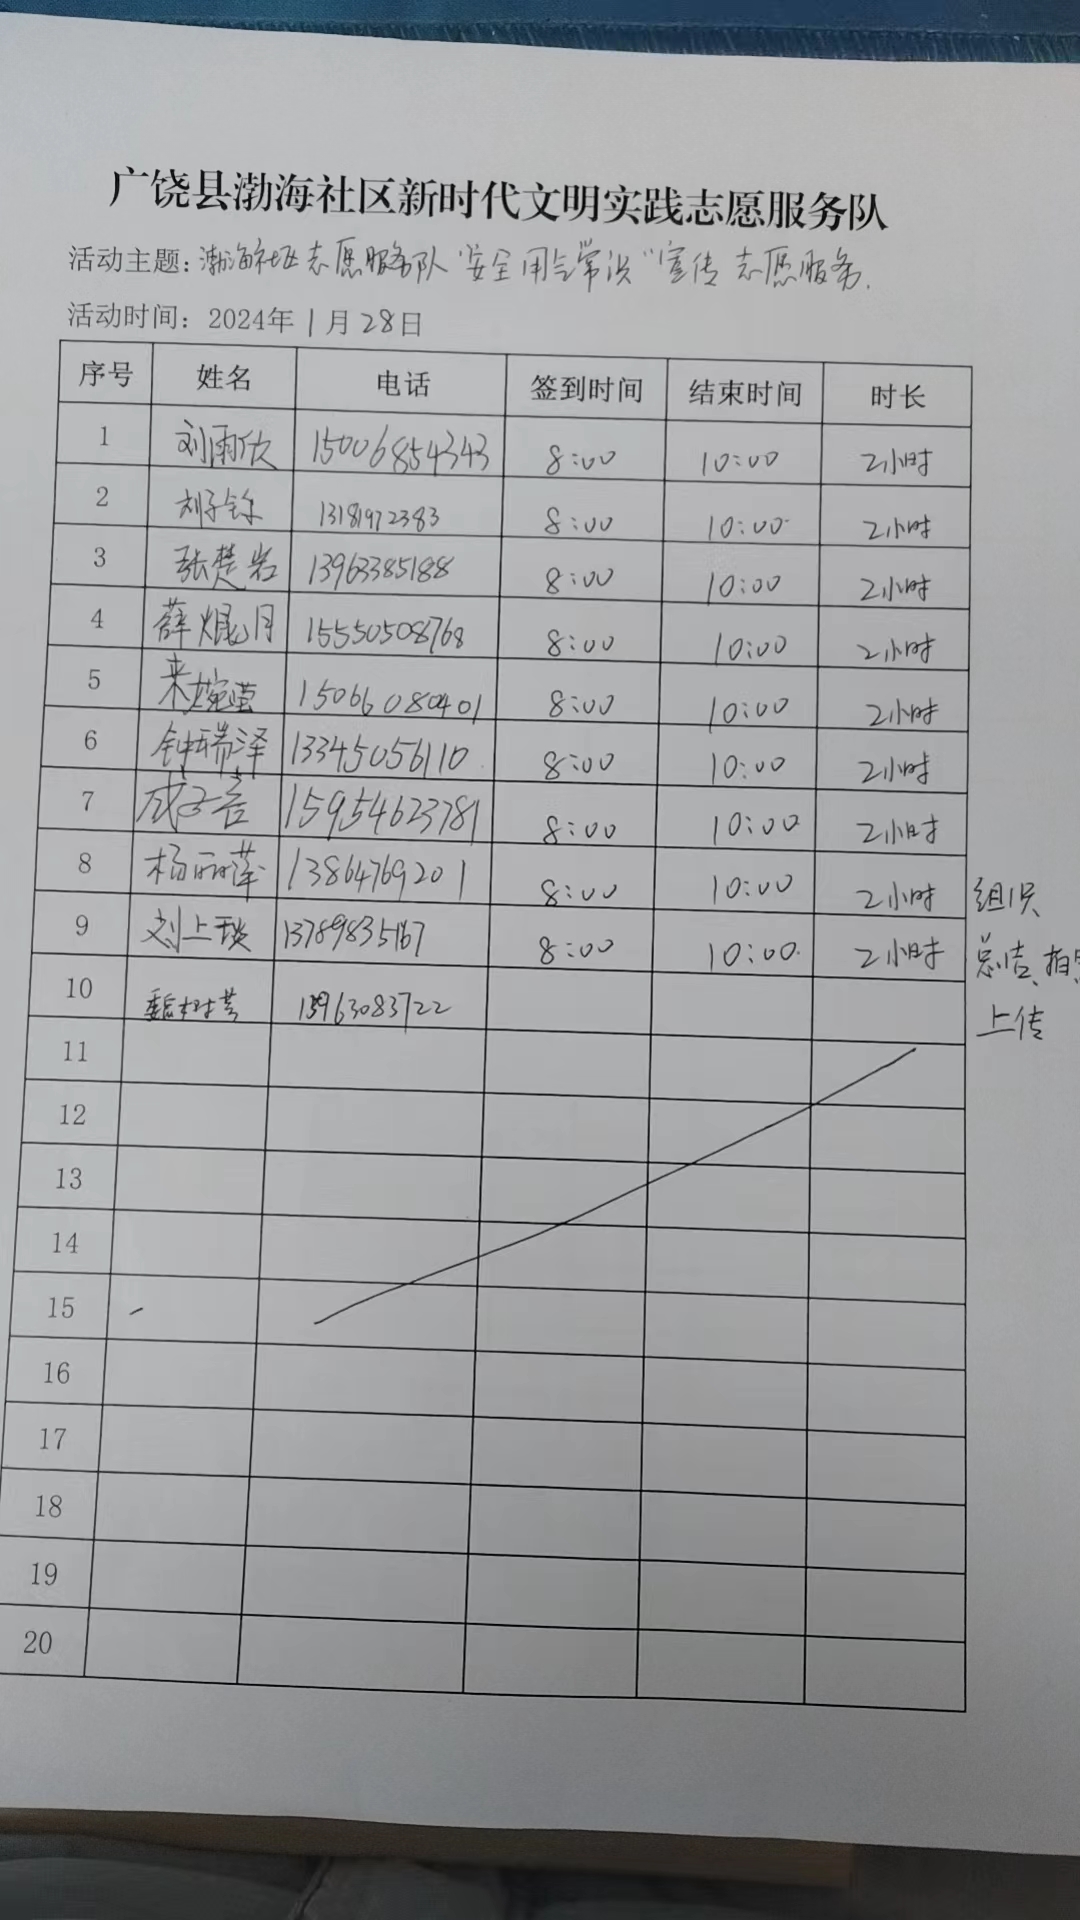 广饶县渤海社区新时代文明实践志愿服务队
活动主题：渤海社区志愿服务队"安全用气常识"宣传志愿服务.
活动时间：2024年1月28日
序号 姓名 电话 签到时间 结束时间 时长
1 刘雨欣 15006854343 8:00 10:00 2小时
2 刘子钰 13181972383 8:00 10:00 2小时
3 张楚岩 13963385188 8:00 10:00 2小时
4 薛焜月 15550508768 8:00 10:00 2小时
5 来婉莹 15066080401 8:00 10:00 2小时
6 钟瑞泽 13345056110 8:00 10:00 2小时
7 成子喜 15954623781 8:00 10:00 2小时
8 杨丽萍 13864769201 8:00 10:00 2小时 组织
9 刘上瑛 13789835167 8:00 10:00 2小时 总结、拍
10 魏树芳 13963083722 上传
11
12
13
14
15
16
17
18
19
20